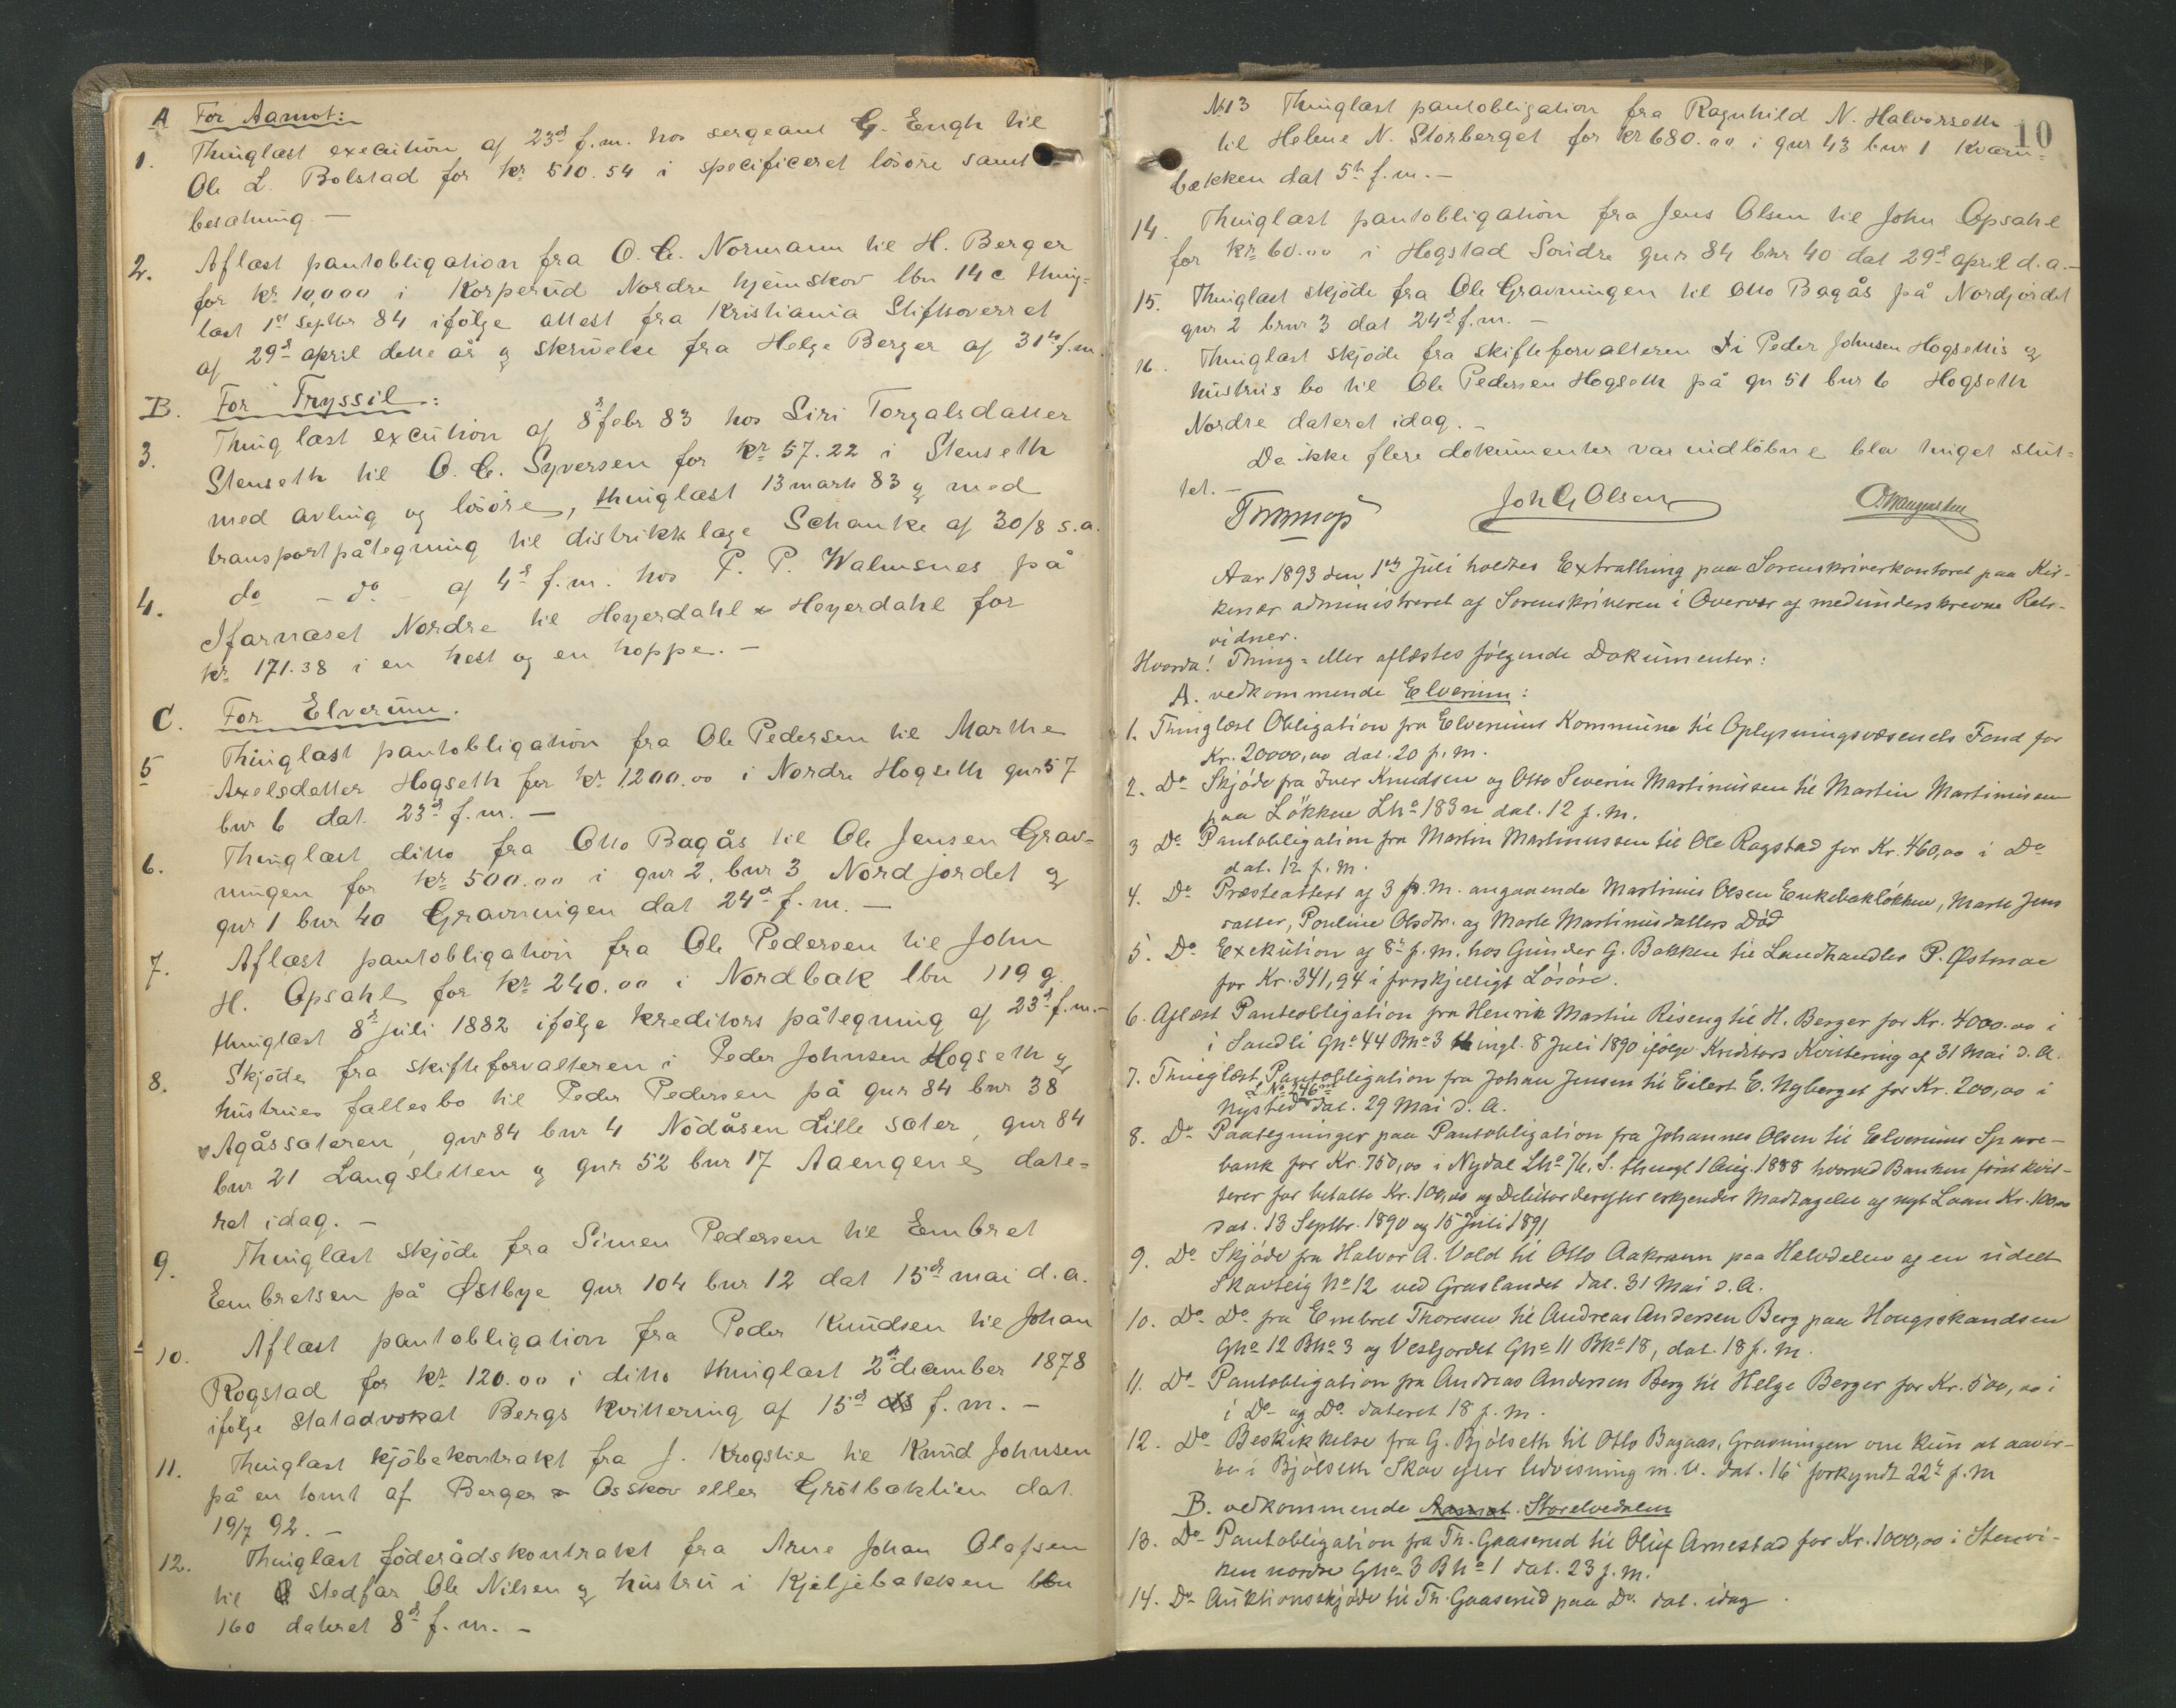 A For Aamot:
1. Thinglæst execution af 23de f.m. hos sergeant G. Engh til
Ole L. Bolstad for kr 510.54 i specificeret lösöre samt
besætning. —
2. Aflæst pantobligation fra O. C. Normann til H. Berger
for kr 10,000 i Korperud Nordre hjemskov lbn 14c thing=
læst 1st Septbr 84 ifölge attest fra Kristiania Stiftsoverret
af 29de april dette år og skrivelse fra Helge Berger af 31te f.m.
B. For Tryssil:
3. Thinglæst excution af 8de febr 83 hos Siri Torgalsdatter
Stenseth til O. C. Syversen for kr 57.22 i Stenseth
med avling og lösöre, thinglæst 13 marts 83 og med
transportpåtegning til distriktslæge Schanke af 30/8 s.a.
4. do - do - af 4de f.m. hos P. P. Walmsnes på
Ifarnæset Nordre til Heyerdahl & Heyerdahl for
kr 171.38 i en hest og en hoppe. —
C. For Elverum.
5 Thinglæst pantobligation fra Ole Pedersen til Marthe
Axelsdatter Hogseth for kr 1200.00 i Nordre Hogseth gnr 57
bnr 6 dat. 23de f.m. —
6. Thinglæst ditto fra Otto Bagås til Ole Jensen Grav-
ningen for kr 500.00 i gnr 2, bnr 3 Nordjordet og
gnr 1 bnr 40 Gravningen dat 24de f.m. —
7. Aflæst pantobligation fra Ole Pedersen til John
H. Opsahl for kr 240.00 i Nordbak lbn 119 g
thinglæst 8de juli 1882 ifölge kreditors påtegning af 23de f.m.-
8. Skjöde fra skifteforvalteren i Peder Johnsen Hogseth og
hustrues fællesbo til Peder Pedersen på gnr 84 bnr 38
Agåssæteren, gnr 84 bnr 4 Nödåsen Lille sæter, gnr 84
bnr 21 Langsletten og gnr 52 bnr 17 Aaengene date=
ret idag. —
9. Thinglæst skjöde fra Simen Pedersen til Embret
Embretsen på Østbye gnr 104 bnr 12 dat 15de mai d.a.
10. Aflæst pantobligation fra Peder Knudsen til Johan
Rogstad for kr 120.00 i ditto thinglæst 2de december 1878
ifölge statadvokat Bergs kvittering af 15de f.m. —
11. Thinglæst kjöbekontrakt fra J. Krogstie til Knud Johnsen
på en tomt af Berger & Osskov eller Grötbæklien dat.
19/7 92. —
12. Thinglæst föderådskontrakt fra Arne Johan Olafsen
til stedfar Ole Nilsen og hustru i Kjeljebækken lbn
160 dateret 8de f.m. -
10
№13 Thinglæst pantobligation fra Ragnhild N. Halvorseth
til Helene N. Storberget for kr 680.00 i gnr 43 bnr 1 Kværn=
bækken dat 5te f.m. —
14. Thinglæst pantobligation fra Jens Olsen til John Opsahl
for kr 60.00 i Hogstad Söndre gnr 84 bnr 40 dat 29de april d.a.-
15. Thinglæst skjöde fra Ole Gravningen til Otto Bagås på Nordjordet
gnr 2 bnr 3 dat 24de f.m. —
16. Thinglæst skjöde fra skifteforvalteren i Peder Johnsen Hogseths og
hustrus bo til Ole Pedersen Hogseth på gn 51 bnr 6 Hogseth
Nordre dateret idag. -
Da ikke flere dokumenter var indlöbne blev tinget slut=
tet. -
Joh G Olsen
Aar 1893 den 1ste Juli holdtes Extrathing paa Sorenskriverkontoret paa Kir-
kenær administreret af Sorenskriveren i Overvær af medunderskrevne Rets-
vidner.
Hvorda! Thing= eller aflæstes fölgende Dokumenter:
A. vedkommende Elverum:
1. Thinglæst Obligation fra Elverums Kommune til Oplysningsvæsenets Fond for
Kr. 20000,00 dat. 20 f.m.
2. Do Skjöde fra Iver Knudsen og Otto Severin Martinussen til Martin Martinussen
paa Lökken Lno 183n dat. 12 f.m.
3 Do Pantobligation fra Martin Martinussen til Ole Rogstad for Kr. 460,00 i Do
dat. 12 f.m.
4. Do Præsteattest af 3 f.m. angaaende Martinus Olsen Enkebaklökken, Marte Jens
datter, Pouline Olsdtr. og Marte Martinusdatters Död
5. Do Exekution af 8de f.m. hos Gunder G. Bakken til Landhandler P. Østmoe
for Kr. 341,94 i forskjelligt Lösöre.
6. Aflæst Panteobligation fra Henrik Martin Riseng til H. Berger for Kr. 4000.00 i
i Sandli Gno 44 Bno 3 thingl. 8 Juli 1890 ifölge Kreditors Kvittering af 31 Mai d.A.
7. Thinglæst Pantobligation fra Johan Jensen til Eilert E. Nyberget for Kr. 200,00 i
Nysted dat. 29 Mai d.A.
8. Do Paategninger paa Pantobligation fra Johannes Olsen til Elverums Spare-
bank for Kr. 750,00 i Nydal thingl 1 Aug. 1888 hvorved Banken först kvit-
terer for betalte Kr. 100,00 og Debitor derefter erkjender Modtagelse af nyt Laan Kr. 100,00
dat. 13 Septbr. 1890 og 15 Juli 1891
9. Do Skjöde fra Halvor A. Vold til Otto Aakrann paa Halvdelen af en udelt
Skovteig No 12 ved Graslandet dat. 31 Mai d.A.
10. Do Do fra Embret Thoresen til Andreas Andersen Berg paa Hougsskandsen
Gno 12 Bno 3 og Vestjordet Gno 11 Bno 18, dat. 18 f.m.
11. Do Pantobligation fra Andreas Andersen Berg til Helge Berger for Kr. 500,00 i
i Do og Do dateret 18 f.m.
12. Do Beskikkelse fra G. Bjölseth til Otto Bagaas, Gravningen om kun at aavir-
ke i Bjölseth Skov efter Udvisning m.V. dat. 16 forkyndt 22de f.m
B. vedkommende Aamot Storelvedalen
13. Do Pantobligation fra Th. Gaaserud til Oluf Arnestad for Kr. 1000,00 i Stenvi-
ken nordre Gno 3 Bno 1 dat. 23 f.m.
14. Do Auktionsskjöde til Th. Gaaserud paa Do dat. idag.